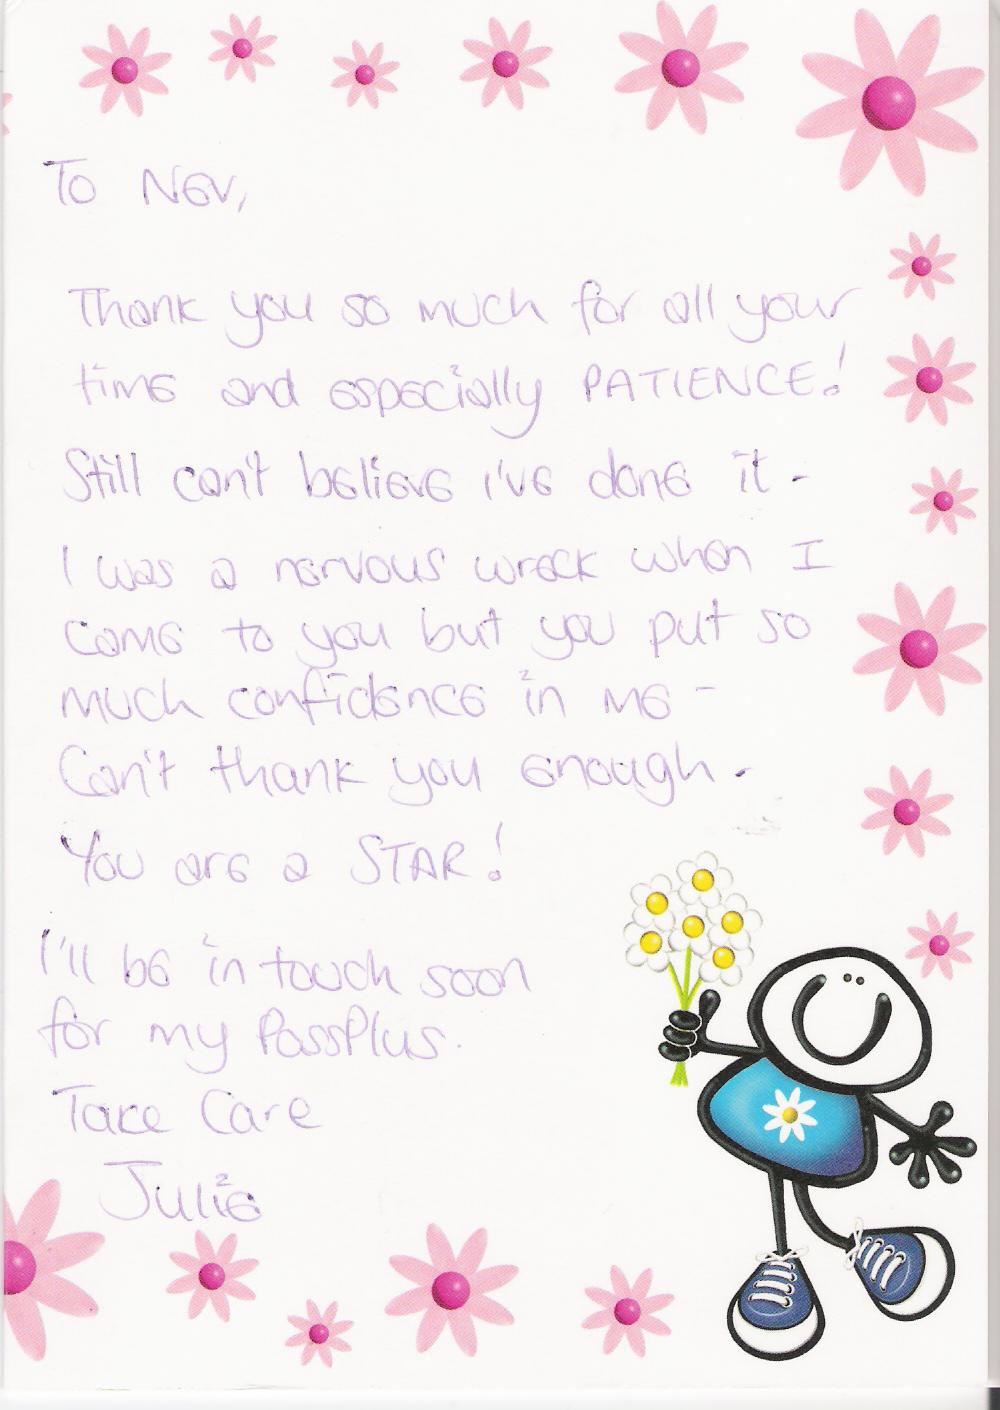 To Nev,
Thank you so much for all your
time and especially PATIENCE!
Still can't believe i've done it -
I was a nervous wreck when I
came to you but you put so
much confidence in me -
Can't thank you enough.
You are a STAR!
I'll be in touch soon
for my PassPlus.
Take Care
Julie